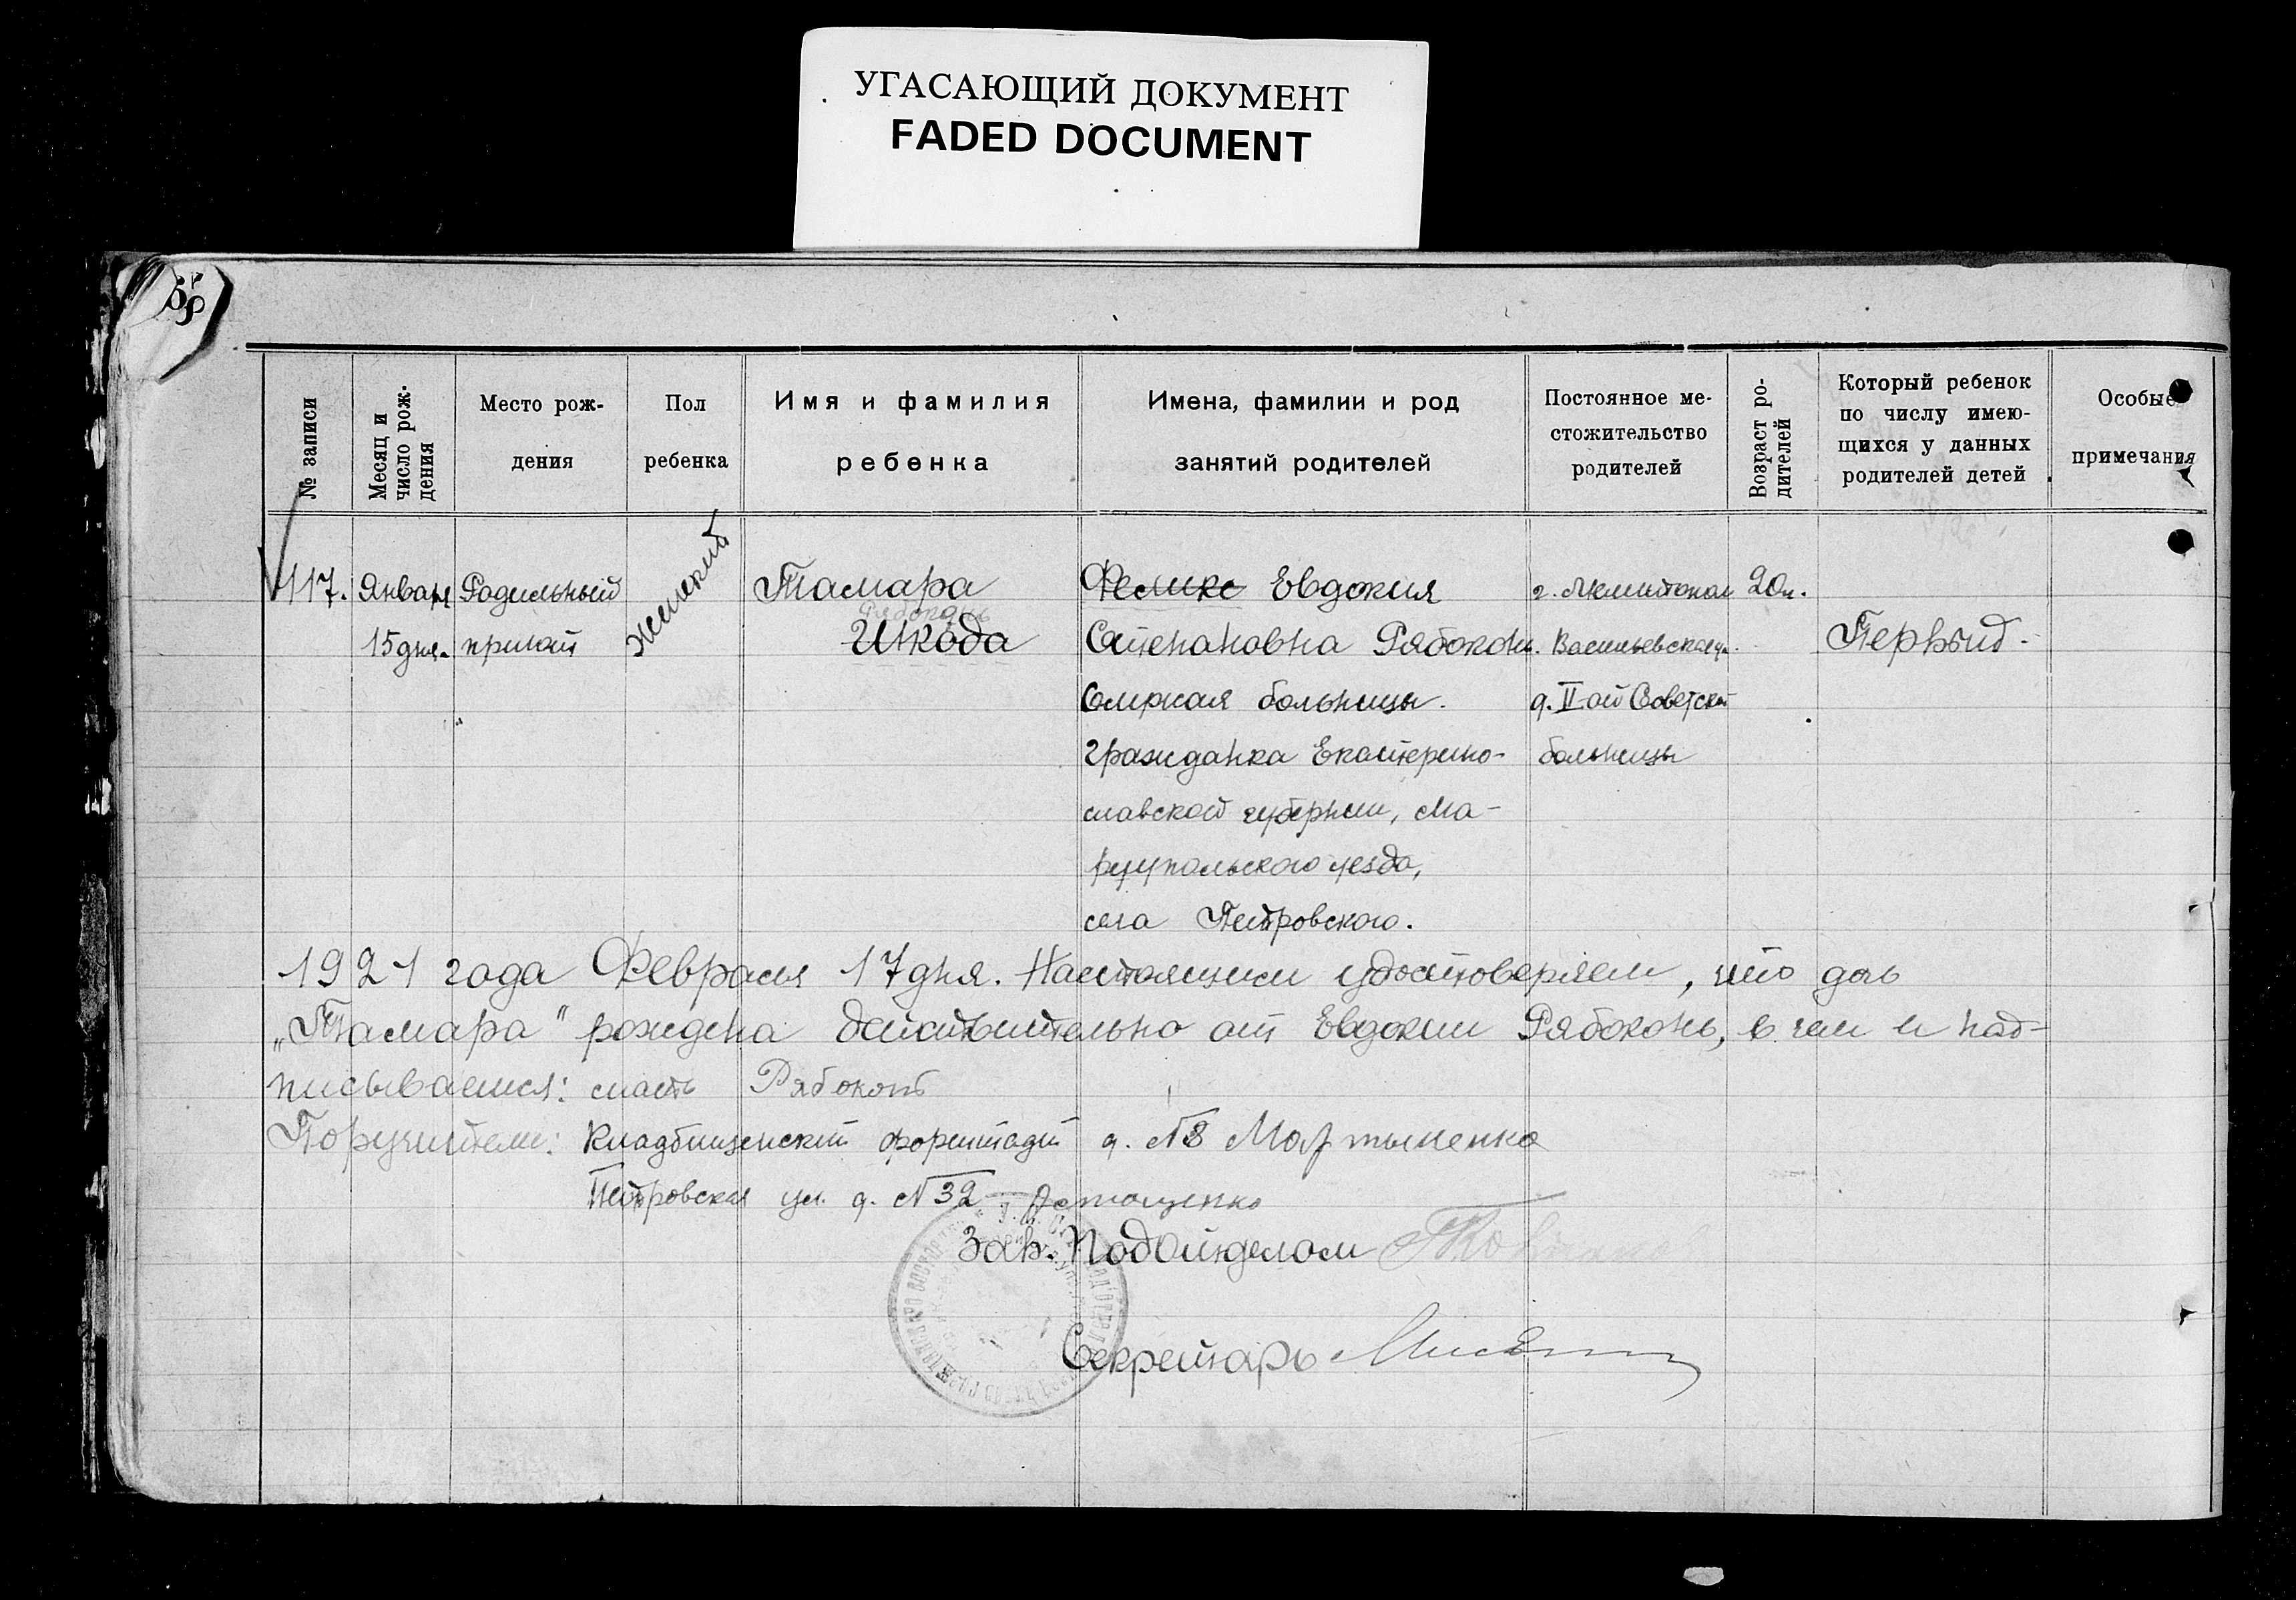 УГАСАЮЩИЙ ДОКУМЕНТ
FADED DOCUMENT
№ записи
Месяц и число рождения
Место рождения
Пол ребенка
Имя и фамилия ребенка
Имена, фамилии и род занятий родителей
Постоянное местожительство родителей
Возраст родителей
Который ребенок по числу имеющихся у данных родителей детей
Особые примечания
117.
Января
15 дня.
Родильный
приют
женский
Тамара
Рябоконь
Шкода
Феликс Евдокия
Степановна Рябоконь.
больницы.
гражданка Екатерино-
славской губернии, Ма-
риупольского уезда,
села Петровского.
г. Мелитополь
Васильевская ул.
д. II-ой Советской
больницы
20 л.
Первый.
1921 года Февраля 17 дня. Настоящим удостоверяем, что дочь
„Тамара" рождена действительно от Евдокии Рябоконь, в чем и под-
писываемся: мать Рябоконь
Поручители: Кладбищенский форштадт д. №8 Мартыненко
Петровская ул. д. №32
Зав. Подотделом
Секретарь